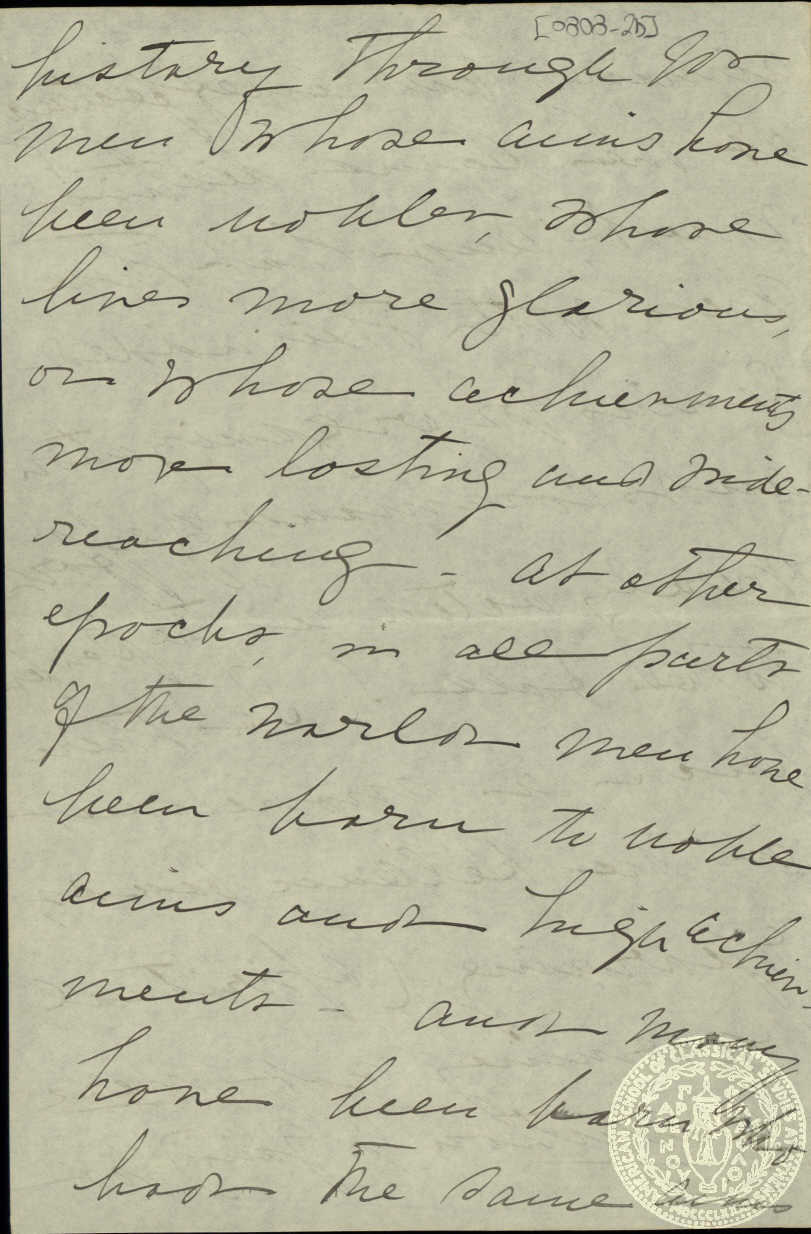 [0303-25]
history through for
men whose aims have
been nobler, whose
lives more glorious,
or whose achievments
more lasting and wide-
reaching - at other
epochs, in all parts
of the world men have
been born to noble
aims and high achiev-
ments - and many
have been born who
had the same aims
AMERICAN SCHOOL OF CLASSICAL STUDIES AT